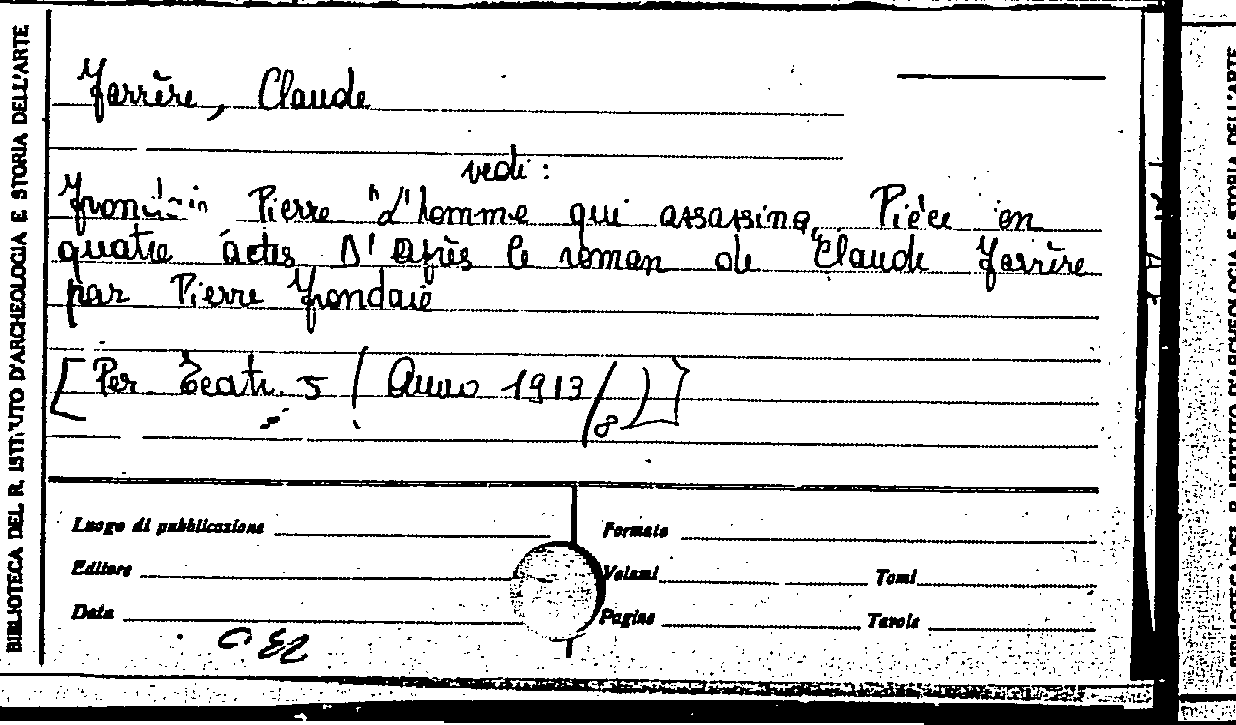 Farrère, Claude
vedi:
Pierre "L'homme qui assassina, Pièce en
quatre actes D'après le roman de Claude Farrère
par Pierre Frondaie
[Per Teatr. 5 (Anno 1913/8)]
Luogo di pubblicazione
Formato
Editore
Volumi
Tomi
Data
Pagine
Tavole
BIBLIOTECA DEL R. ISTITUTO D'ARCHEOLOGIA E STORIA DELL'ARTE